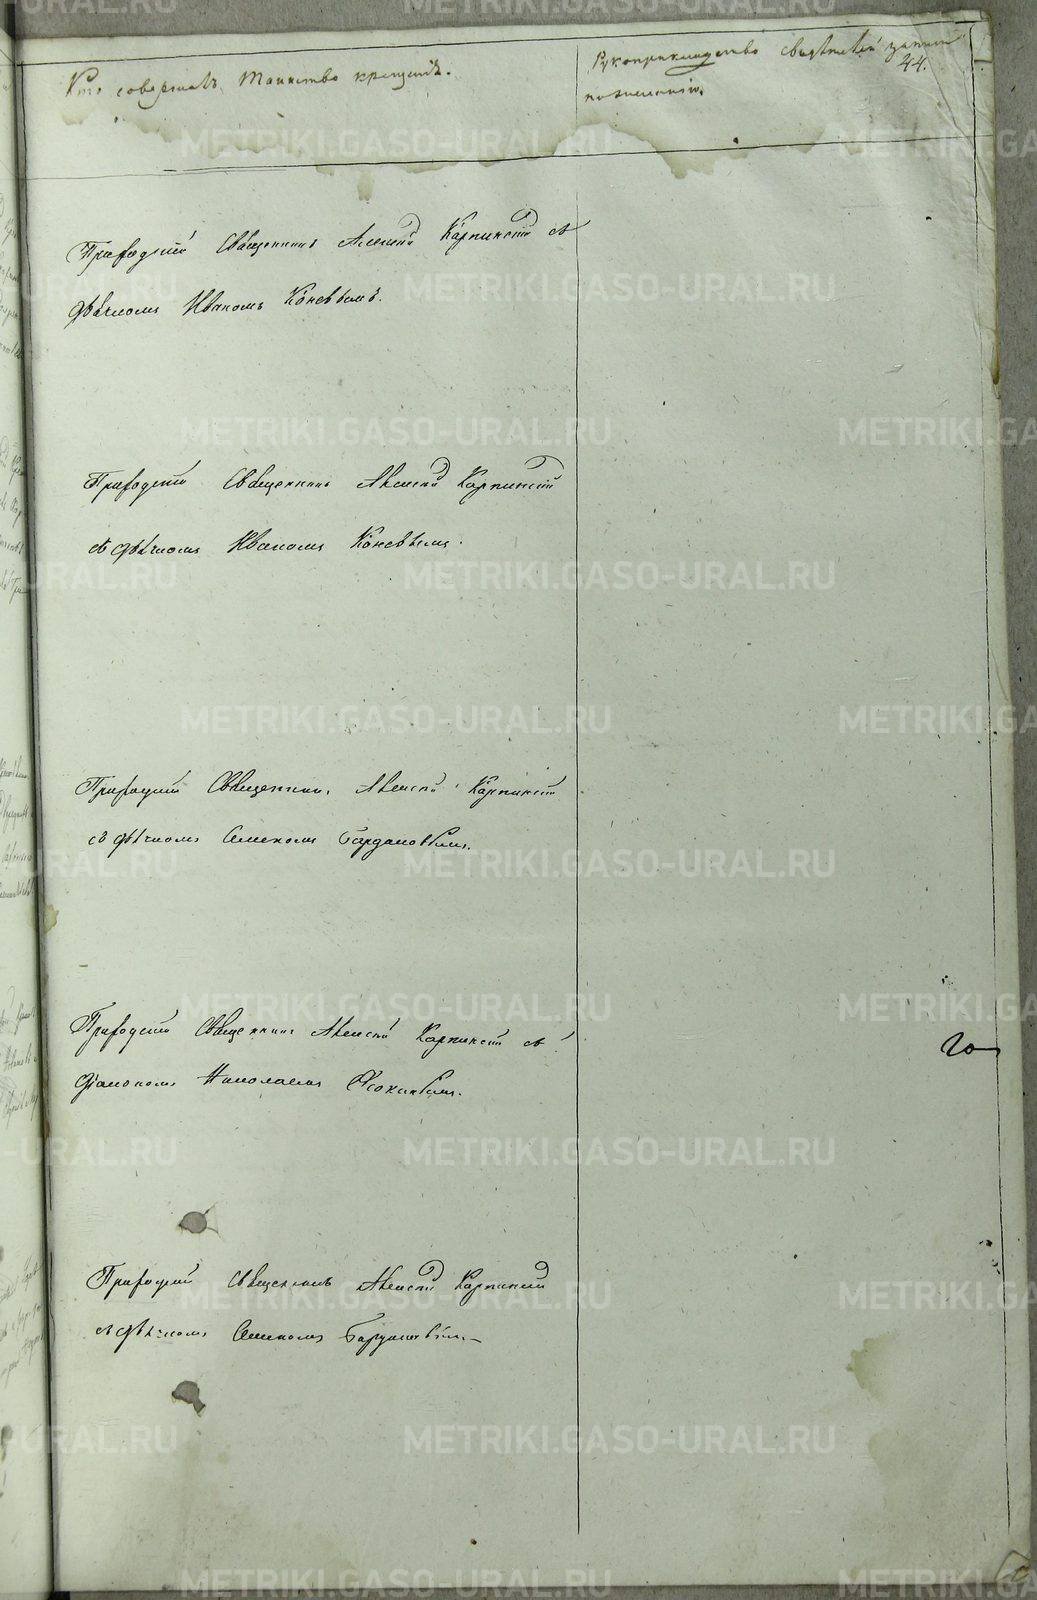 Кто совершалъ таинство крещенія.
Рукоприкладство свидѣтелей записи
44.
по желанію.
Приходскій Священникъ Алексій Карпинскій съ
дьячкомъ Иваномъ Коневымъ.
Приходскій Священникъ Алексій Карпинскій
съ дьячкомъ Иваномъ Коневымъ.
Приходскій Священникъ Алексій Карпинскій
съ дьячкомъ Семеномъ
Приходскій Священникъ Алексій Карпинскій съ
діакономъ Николаемъ
Приходскій Священникъ Алексій Карпинскій
съ дьячкомъ Семеномъ
METRIKI.GASO-URAL.RU